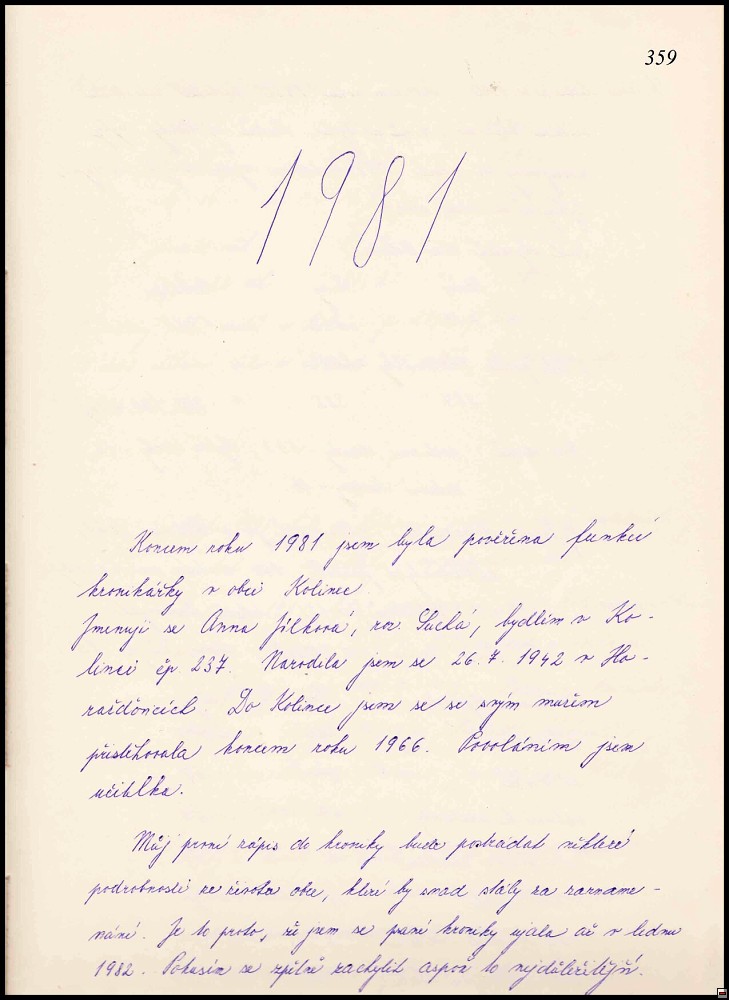 359
1981
Koncem roku 1981 jsem byla pověřena funkcí
kronikářky v obci Kolinec.
Jmenuji se Anna Jílková, roz. Suchá, bydlím v Ko-
linci čp. 237. Narodila jsem se 26. 7. 1942 v Ho-
ražďovicích. Do Kolince jsem se se svým mužem
přistěhovala koncem roku 1966. Povoláním jsem
učitelka.
Můj první zápis do kroniky bude postrádat některé
podrobnosti ze života obce, které by snad stály za zazname-
nání. Je to proto, že jsem se psaní kroniky ujala až v lednu
1982. Pokusím se zpětně zachytit aspoň to nejdůležitější.